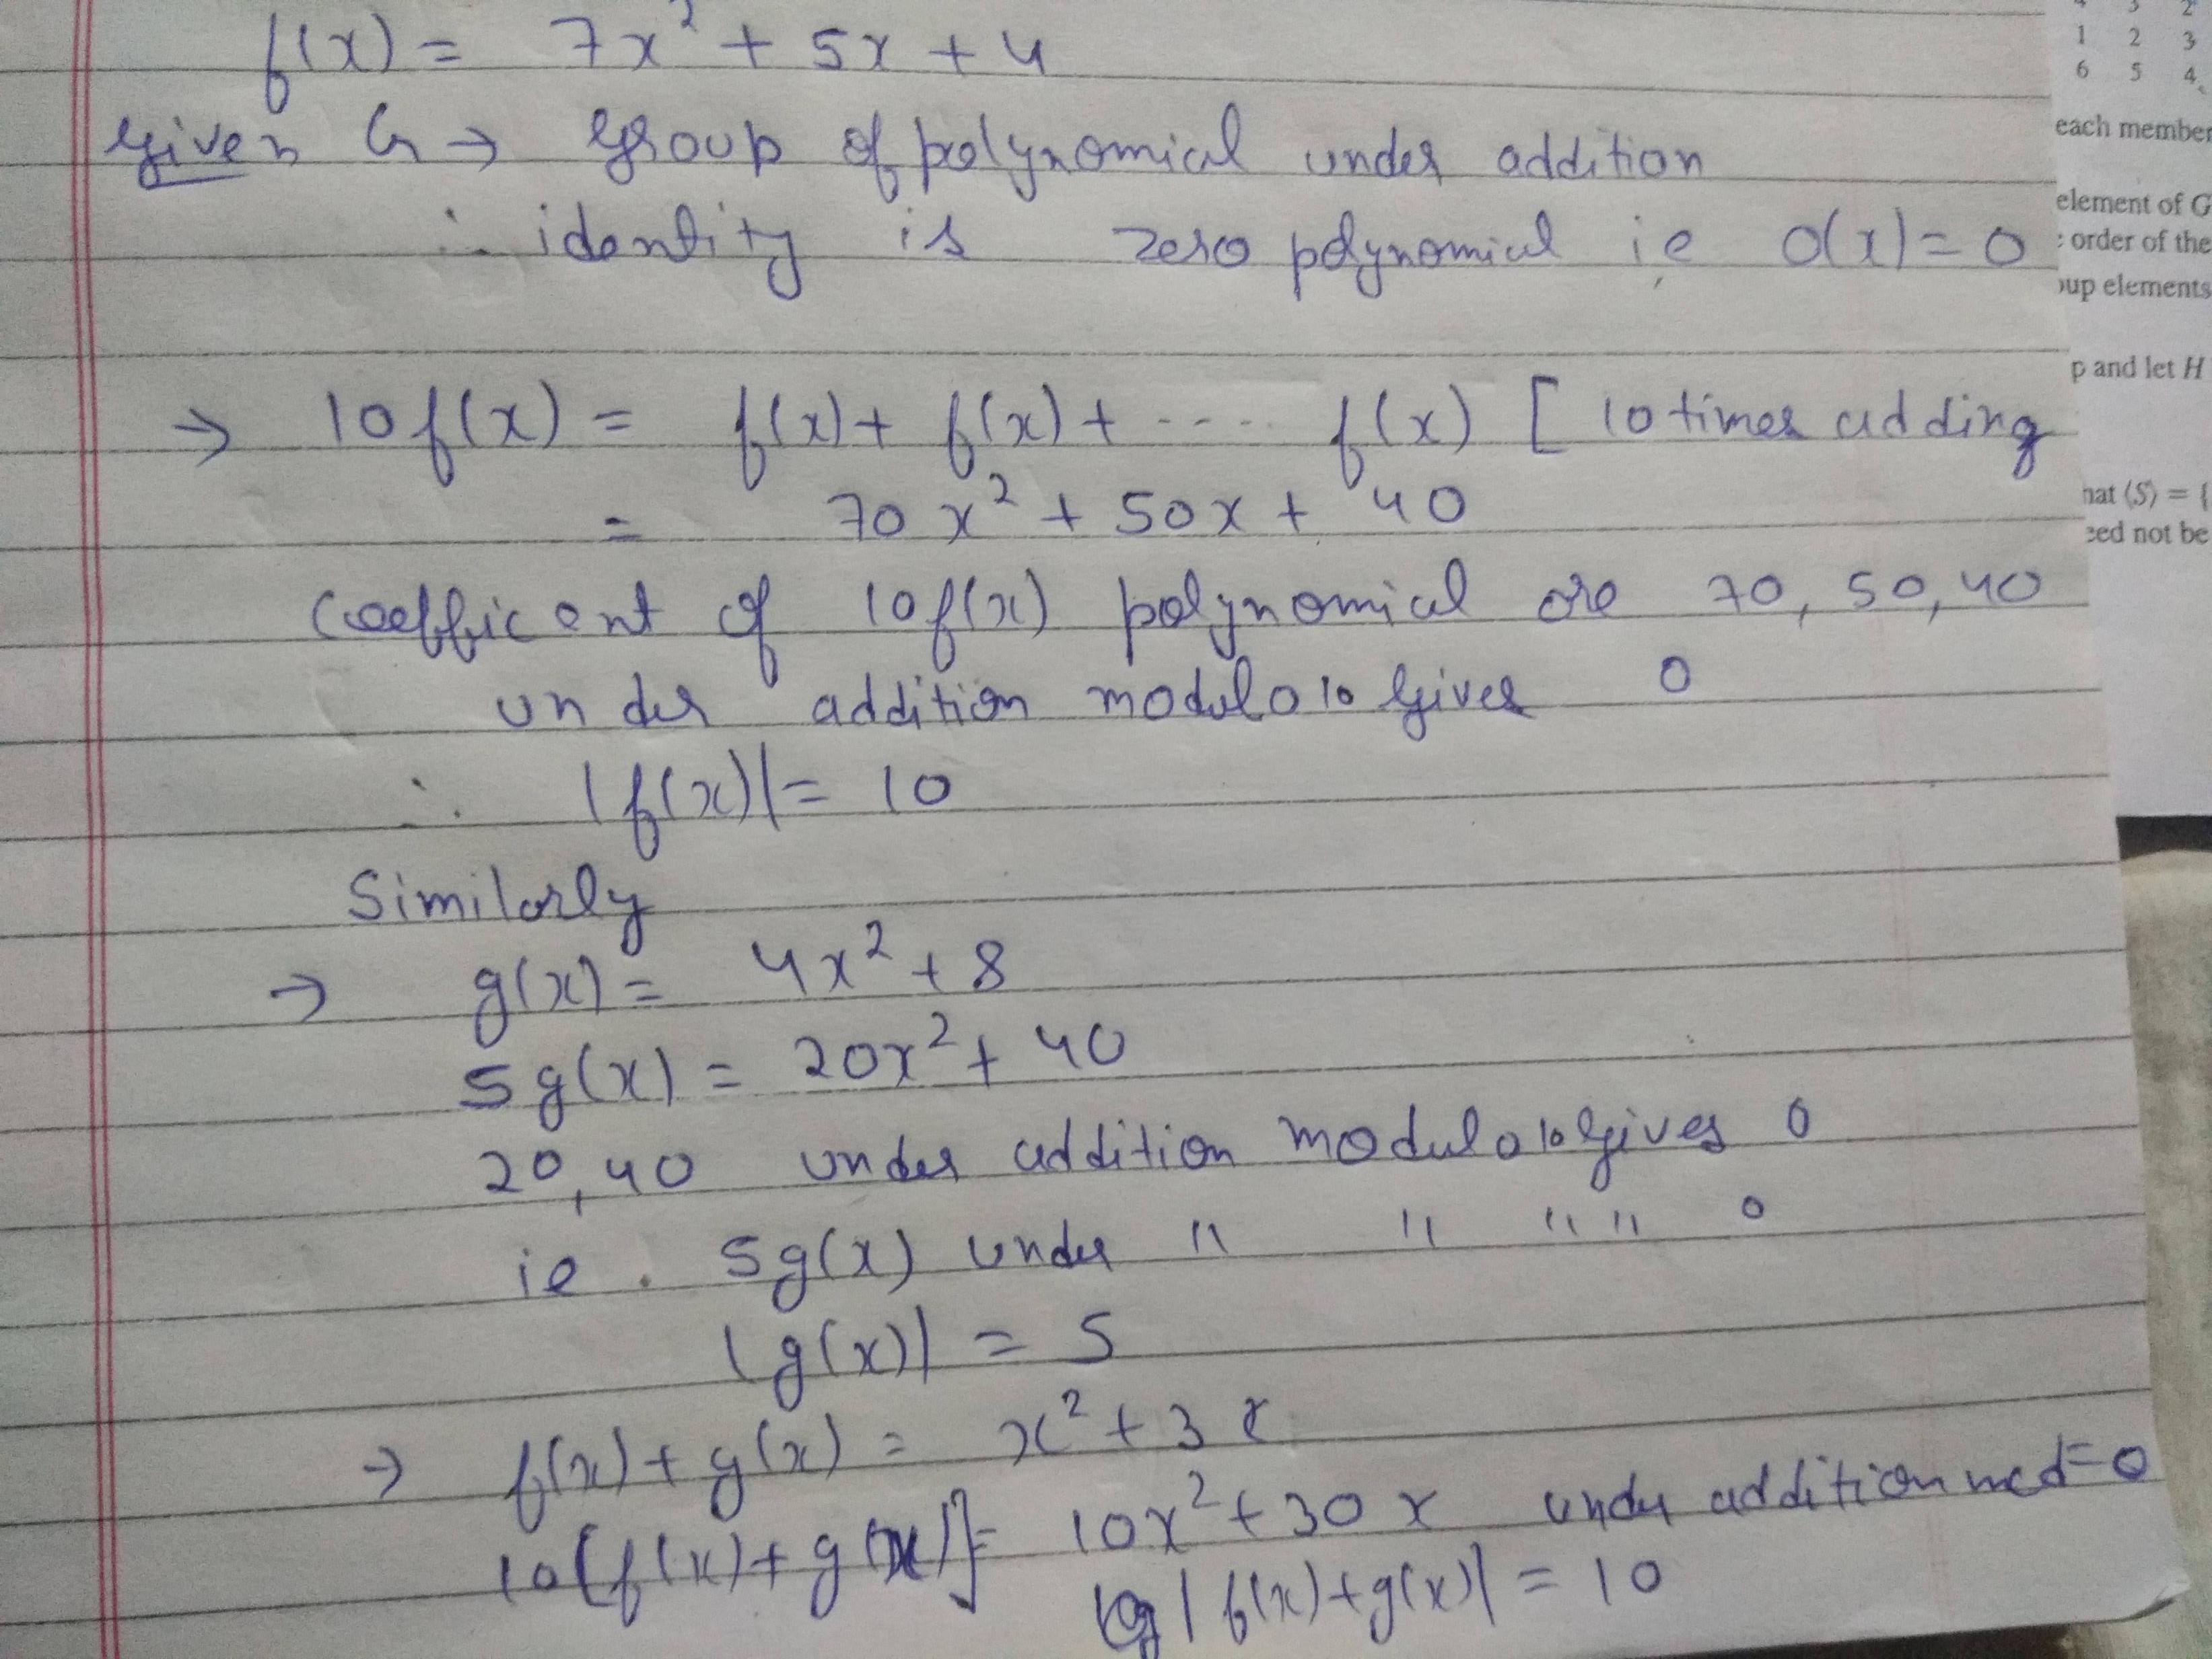 f(x) = 7x² + 5x + 4
given G → group of polynomical under addition
∴ identity is zero polynomial ie O(x) = 0
→ 10f(x) = f(x) + f(x) + ---- f(x) [ 10 times adding
= 70x² + 50x + 40
Coefficent of 10f(x) polynomical are 70, 50, 40
under addition modulo 10 gives 0
∴ |f(x)| = 10
Similarly
→ g(x) = 4x² + 8
5g(x) = 20x² + 40
20, 40 under addition modulo 10 gives 0
ie . 5g(x) under " " " " 0
|g(x)| = 5
→ f(x) + g(x) = x² + 3x
10[f(x) + g(x)] = 10x² + 30x under addition mod = 0
|f(x) + g(x)| = 10
4 3 2
1 2 3
6 5 4
each member
element of G
order of the
up elements
p and let H
hat ⟨S⟩ = {
eed not be